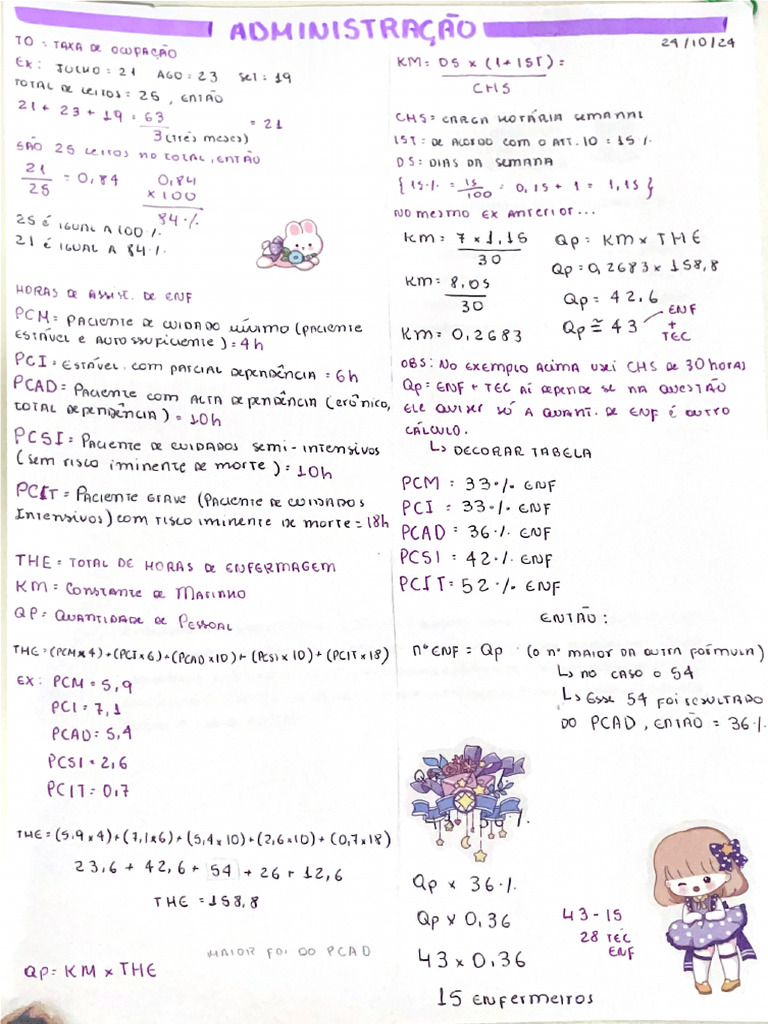 ADMINISTRAÇÃO
24/10/24
TO = TAXA DE OCUPAÇÃO
EX: JULHO = 21 AGO = 23 SET = 19
TOTAL DE LEITOS = 25, ENTÃO
21 + 23 + 19 = 63 = 21
3 (três meses)
SÃO 25 LEITOS NO TOTAL, ENTÃO
21 = 0,84 0,84
25 × 100
84 %
25 É IGUAL A 100 %
21 É IGUAL A 84 %
HORAS DE ASSIST. DE ENF
PCM = PACIENTE DE CUIDADO MÍNIMO (PACIENTE
ESTÁVEL E AUTOSSUFICIENTE) = 4h
PCI = ESTÁVEL COM PARCIAL DEPENDÊNCIA = 6h
PCAD = PACIENTE COM ALTA DEPENDÊNCIA (CRÔNICO,
TOTAL DEPENDÊNCIA) = 10h
PCSI = PACIENTE DE CUIDADOS SEMI-INTENSIVOS
(SEM RISCO IMINENTE DE MORTE) = 10h
PCIT = PACIENTE GRAVE (PACIENTE DE CUIDADOS
INTENSIVOS) COM RISCO IMINENTE DE MORTE = 18h
THE = TOTAL DE HORAS DE ENFERMAGEM
KM = CONSTANTE DE MARINHO
QP = QUANTIDADE DE PESSOAL
THE = (PCM × 4) + (PCI × 6) + (PCAD × 10) + (PCSI × 10) + (PCIT × 18)
EX: PCM = 5,9
PCI = 7,1
PCAD = 5,4
PCSI = 2,6
PCIT = 0,7
THE = (5,9 × 4) + (7,1 × 6) + (5,4 × 10) + (2,6 × 10) + (0,7 × 18)
23,6 + 42,6 + 54 + 26 + 12,6
THE = 158,8
MAIOR FOI DO PCAD
QP = KM × THE
KM = DS × (1 + IST) =
CHS
CHS = CARGA HORÁRIA SEMANAL
IST = DE ACORDO COM O ATT. 10 = 15 %
DS = DIAS DA SEMANA
{ 15 % = 15 = 0,15 + 1 = 1,15 }
100
NO MESMO EX ANTERIOR...
KM = 7 × 1,15
30
KM = 8,05
30
KM = 0,2683
Qp = KM × THE
Qp = 0,2683 × 158,8
Qp = 42,6
Qp ≅ 43 ENF
+
TEC
OBS: NO EXEMPLO ACIMA USEI CHS DE 30 HORAS
Qp = ENF + TEC AÍ DEPENDE SE NA QUESTÃO
ELE QUISER SÓ A QUANT. DE ENF É OUTRO
CÁLCULO.
↳ DECORAR TABELA
PCM = 33 % ENF
PCI = 33 % ENF
PCAD = 36 % ENF
PCSI = 42 % ENF
PCIT = 52 % ENF
ENTÃO:
nº ENF = Qp (O nº MAIOR DA OUTRA FÓRMULA)
↳ NO CASO O 54
↳ ESSE 54 FOI RESULTADO
DO PCAD, ENTÃO = 36 %
Qp × 36 %
Qp × 0,36
43 × 0,36
15 ENFERMEIROS
43 - 15
28 TÉC
ENF